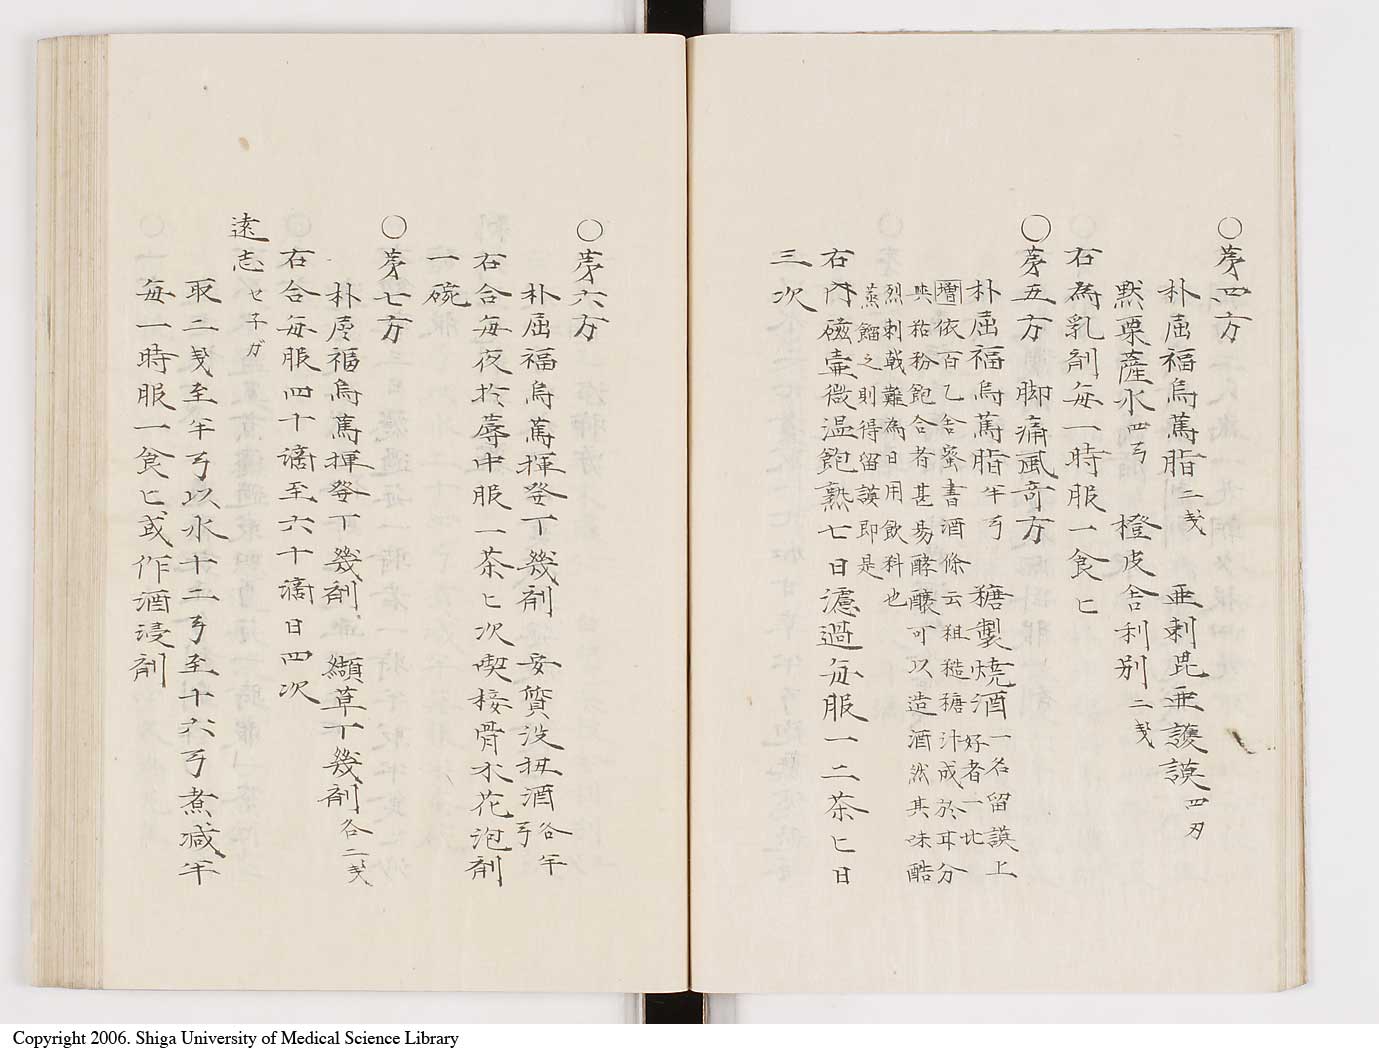 ○第四方
朴屈福烏篤脂二戔 亜剌毘亜護謨四刃
黙栗薩水四弓 橙皮舎利別二戔
右為乳剤毎一時服一食匕
○第五方 脚痛風奇方
朴屈福烏篤脂半弓 糖製焼酒一名留謨上
好者一比
増依百乙舎蜜書酒條云粗糙糖汁成於耳分
與粘粉飽合者甚易酵醸可以造酒然其味酷
烈刺戟難為日用飲料也
蒸餾之則得留謨即是
右内磁壷微温飽熟七日濾過毎服一二茶匕日
三次
○第六方
朴屈福烏篤揮発丁幾剤 安質没扭酒各半
弓
右合毎夜於蓐中服一茶匕次喫接骨木花泡剤
一碗
○第七方
朴屈福烏篤揮発丁幾剤 纈草丁幾剤各二戔
右合毎服四十滴至六十滴日四次
遠志セ子ガ
取二戔至半弓以水十二弓至十六弓煮減半
毎一時服一食匕或作酒浸剤
Copyright 2006. Shiga University of Medical Science Library